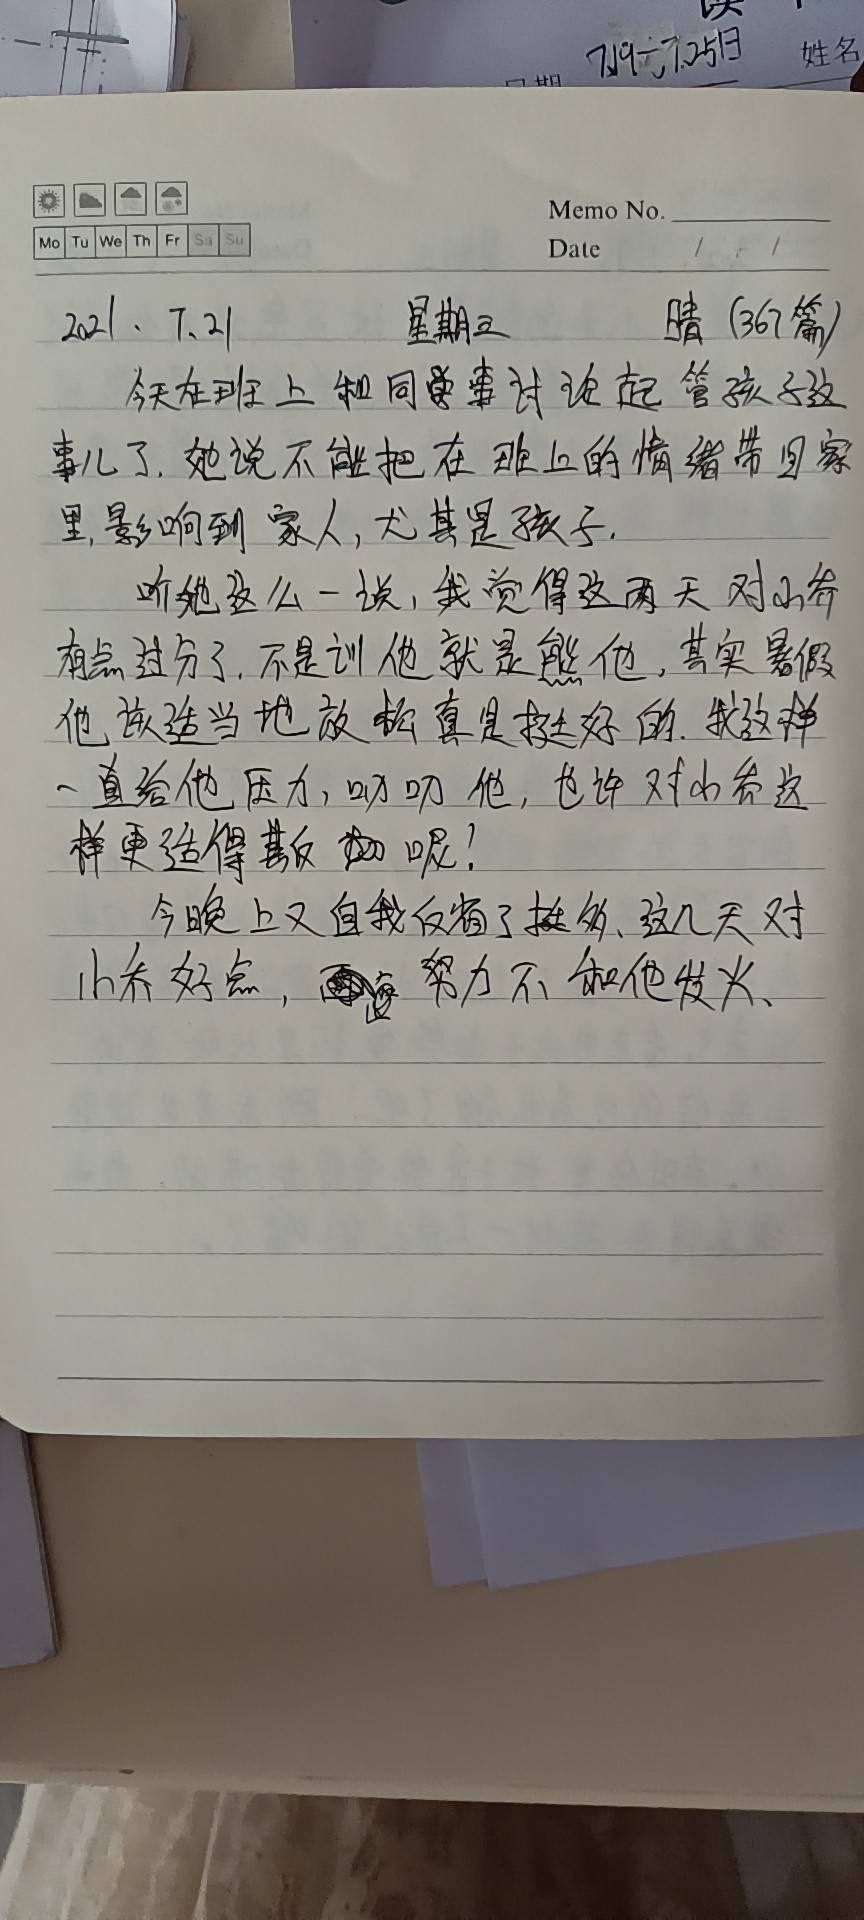 7.19—7.25日 姓名
日期
Memo No.
Mo Tu We Th Fr Sa Su
Date / /
2021.7.21 星期三 晴(367篇)
今天在班上和同事讨论起管孩子这
事儿了.她说不能把在班上的情绪带回家
里,影响到家人,尤其是孩子.
听她这么一说,我觉得这两天对小乔
有点过分了.不是训他就是熊他,其实暑假
他该适当地放松真是挺好的.我这样
一直给他压力,叨叨他,也许对小乔这
样更适得其反呢!
今晚上又自我反省了挺多、这几天对
小乔好点,努力不和他发火、